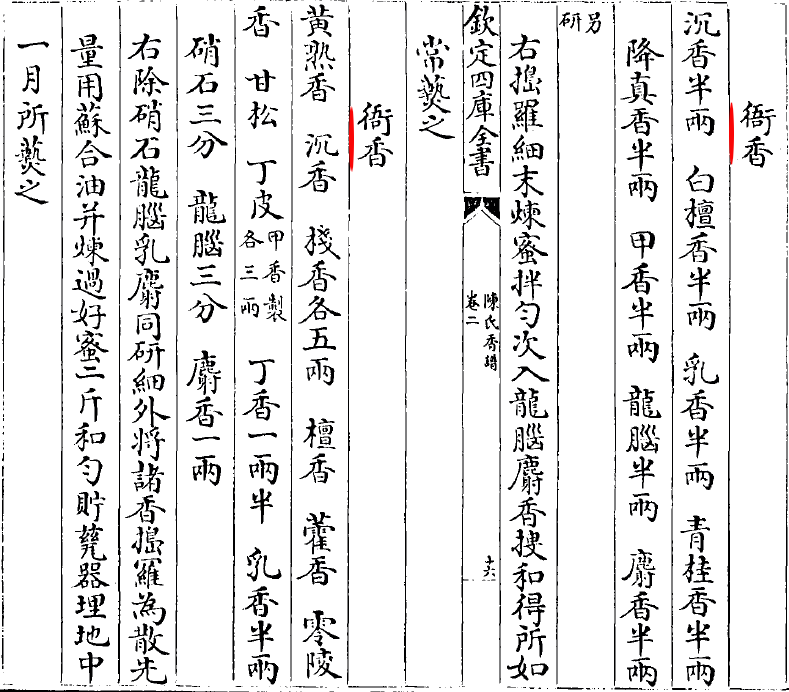 衙香
沉香半兩 白檀香半兩 乳香半兩 青桂香半兩
降真香半兩 甲香半兩 龍腦半兩 麝香半兩
另研
右搗羅細末煉蜜拌勻次入龍腦麝香搜和得所如
欽定四庫全書 陳氏香譜 卷二 十六
常爇之
衙香
黄熟香 沉香 棧香各五兩 檀香 藿香 零陵
香 甘松 丁皮 甲香製各三兩 丁香一兩半 乳香半兩
硝石三分 龍腦三分 麝香一兩
右除硝石龍腦乳麝同研細外將諸香搗羅為散先
量用蘇合油并煉過好蜜二斤和勻貯甆器埋地中
一月所爇之